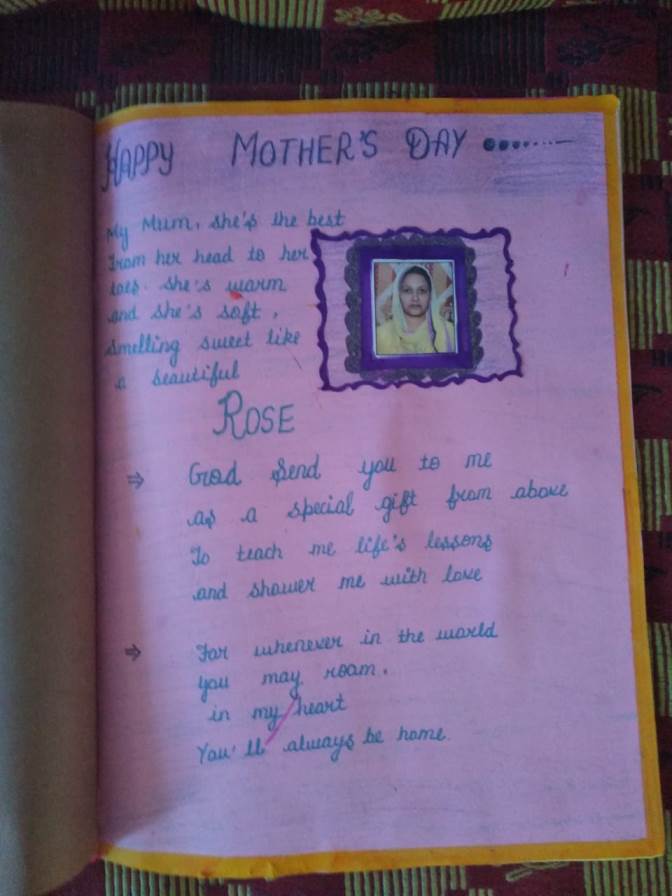 HAPPY MOTHER'S DAY
My Mum, she's the best
From her head to her
toes. She's warm
and she's soft,
smelling sweet like
a beautiful
ROSE
⇒ God Send you to me
as a special gift from above
To teach me life's lessons
and shower me with love
⇒ For whenever in the world
you may roam.
in my heart
You'll always be home.